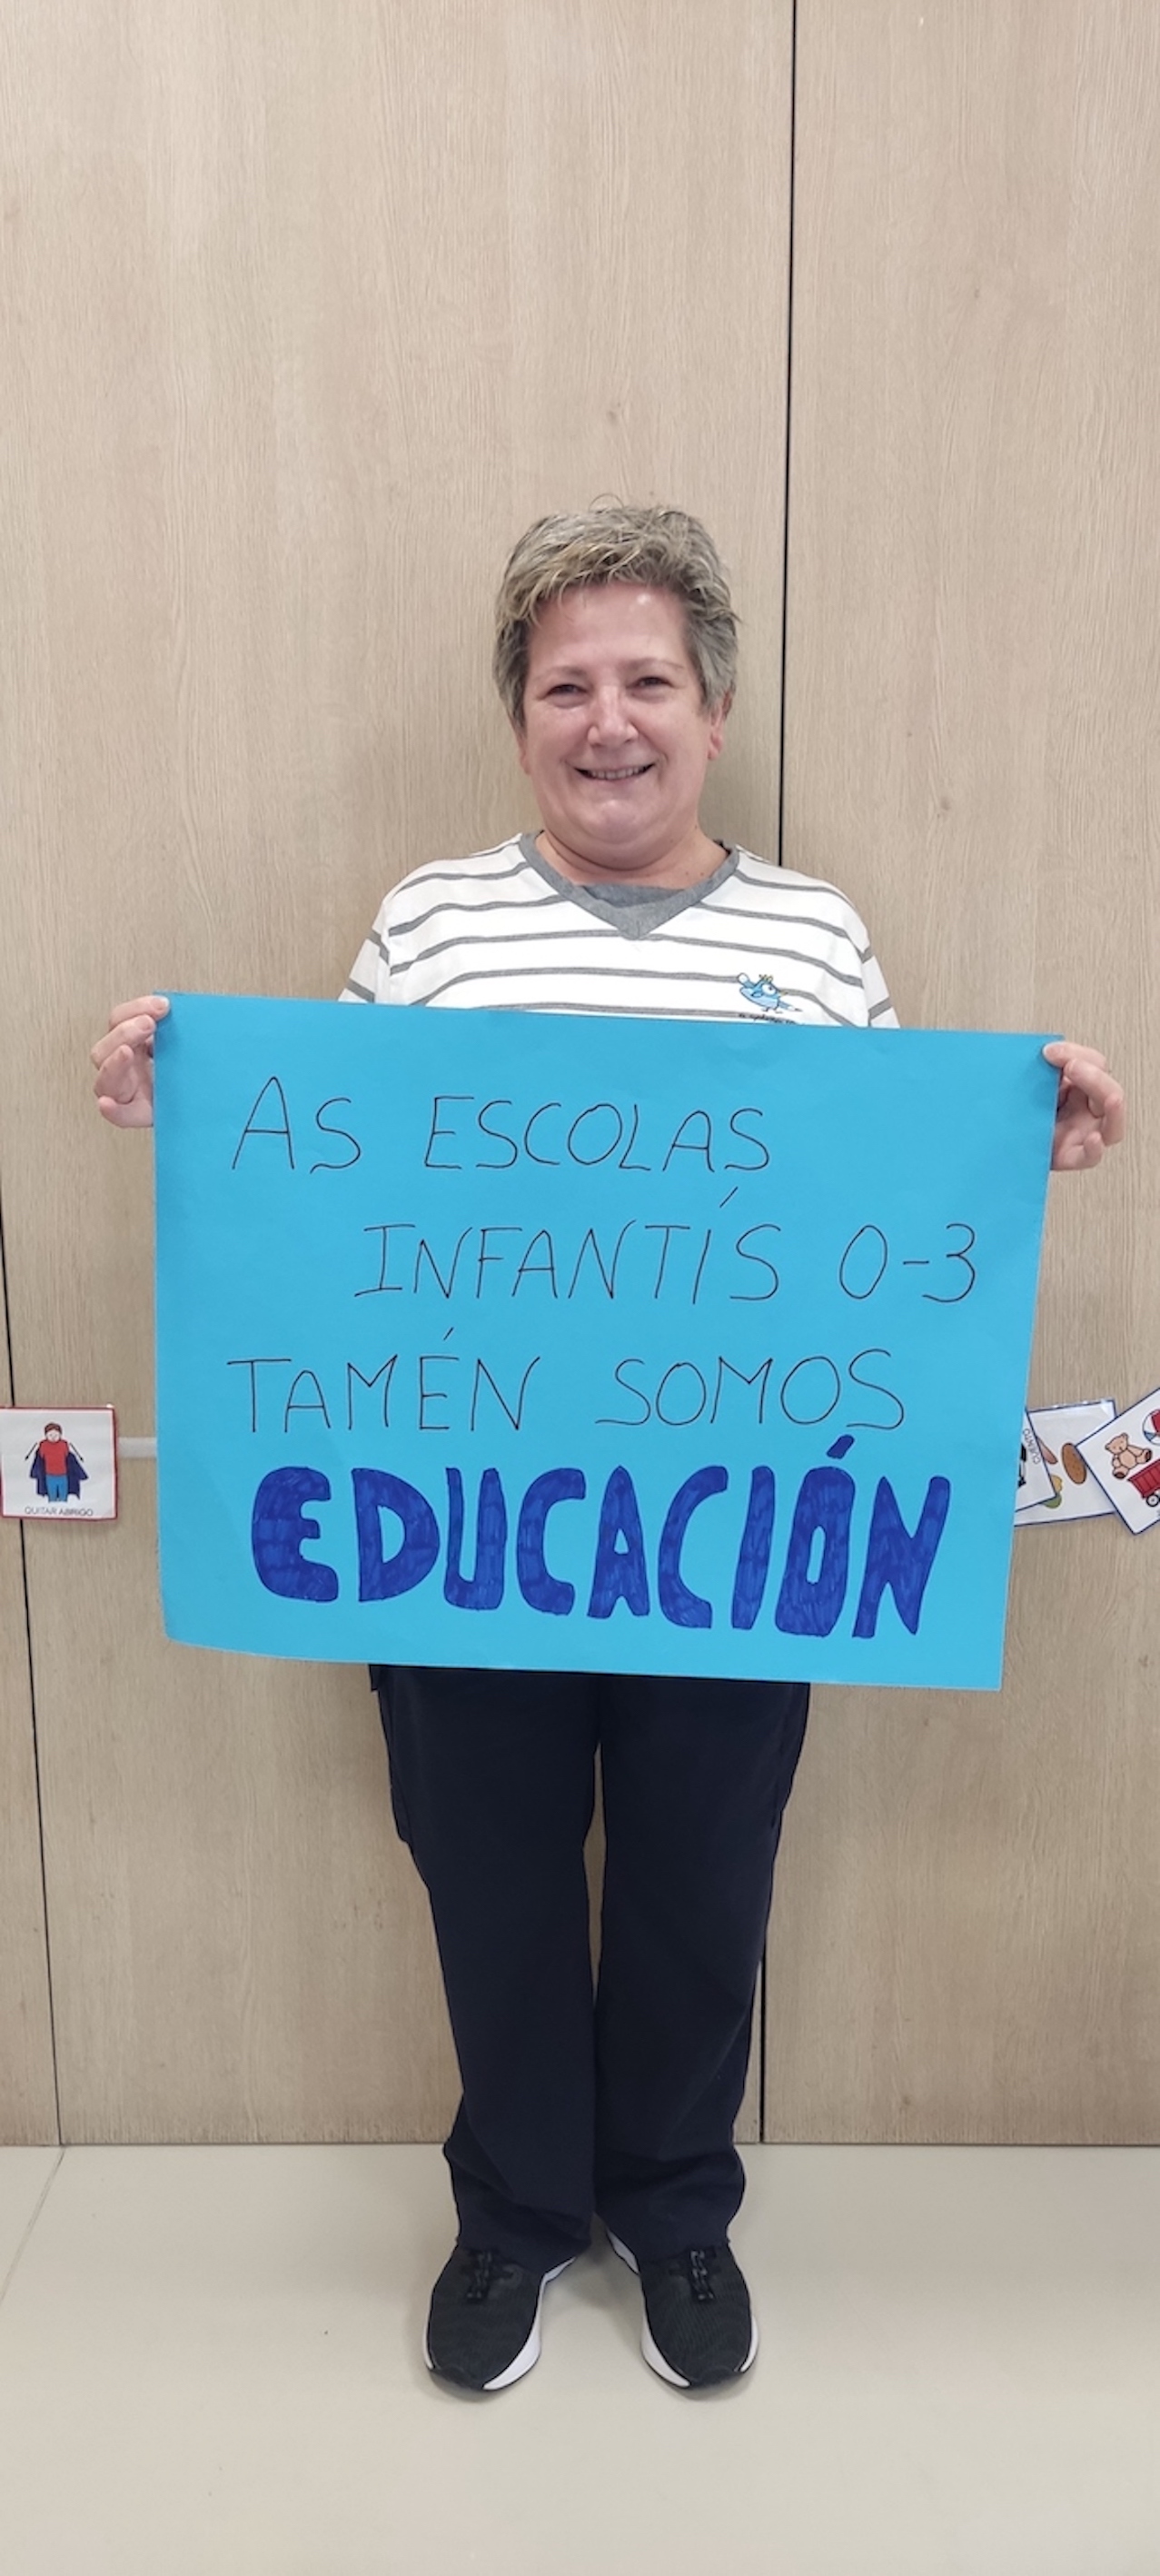 AS ESCOLAS
INFANTÍS 0-3
TAMÉN SOMOS
EDUCACIÓN
QUITAR ABRIGO